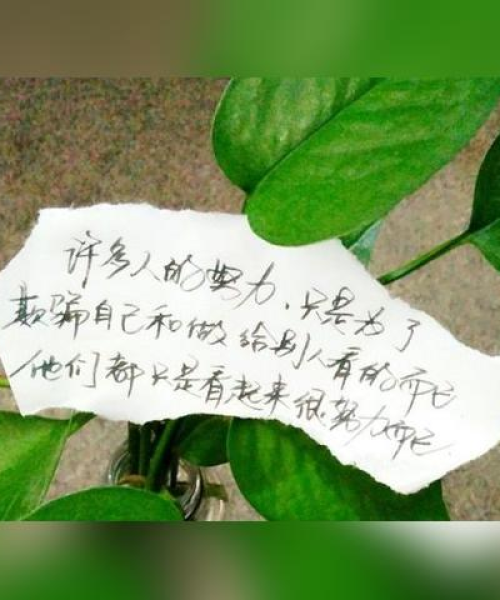 许多人的努力，只是为了
欺骗自己和做给别人看的而已
他们都只是看起来很努力而已